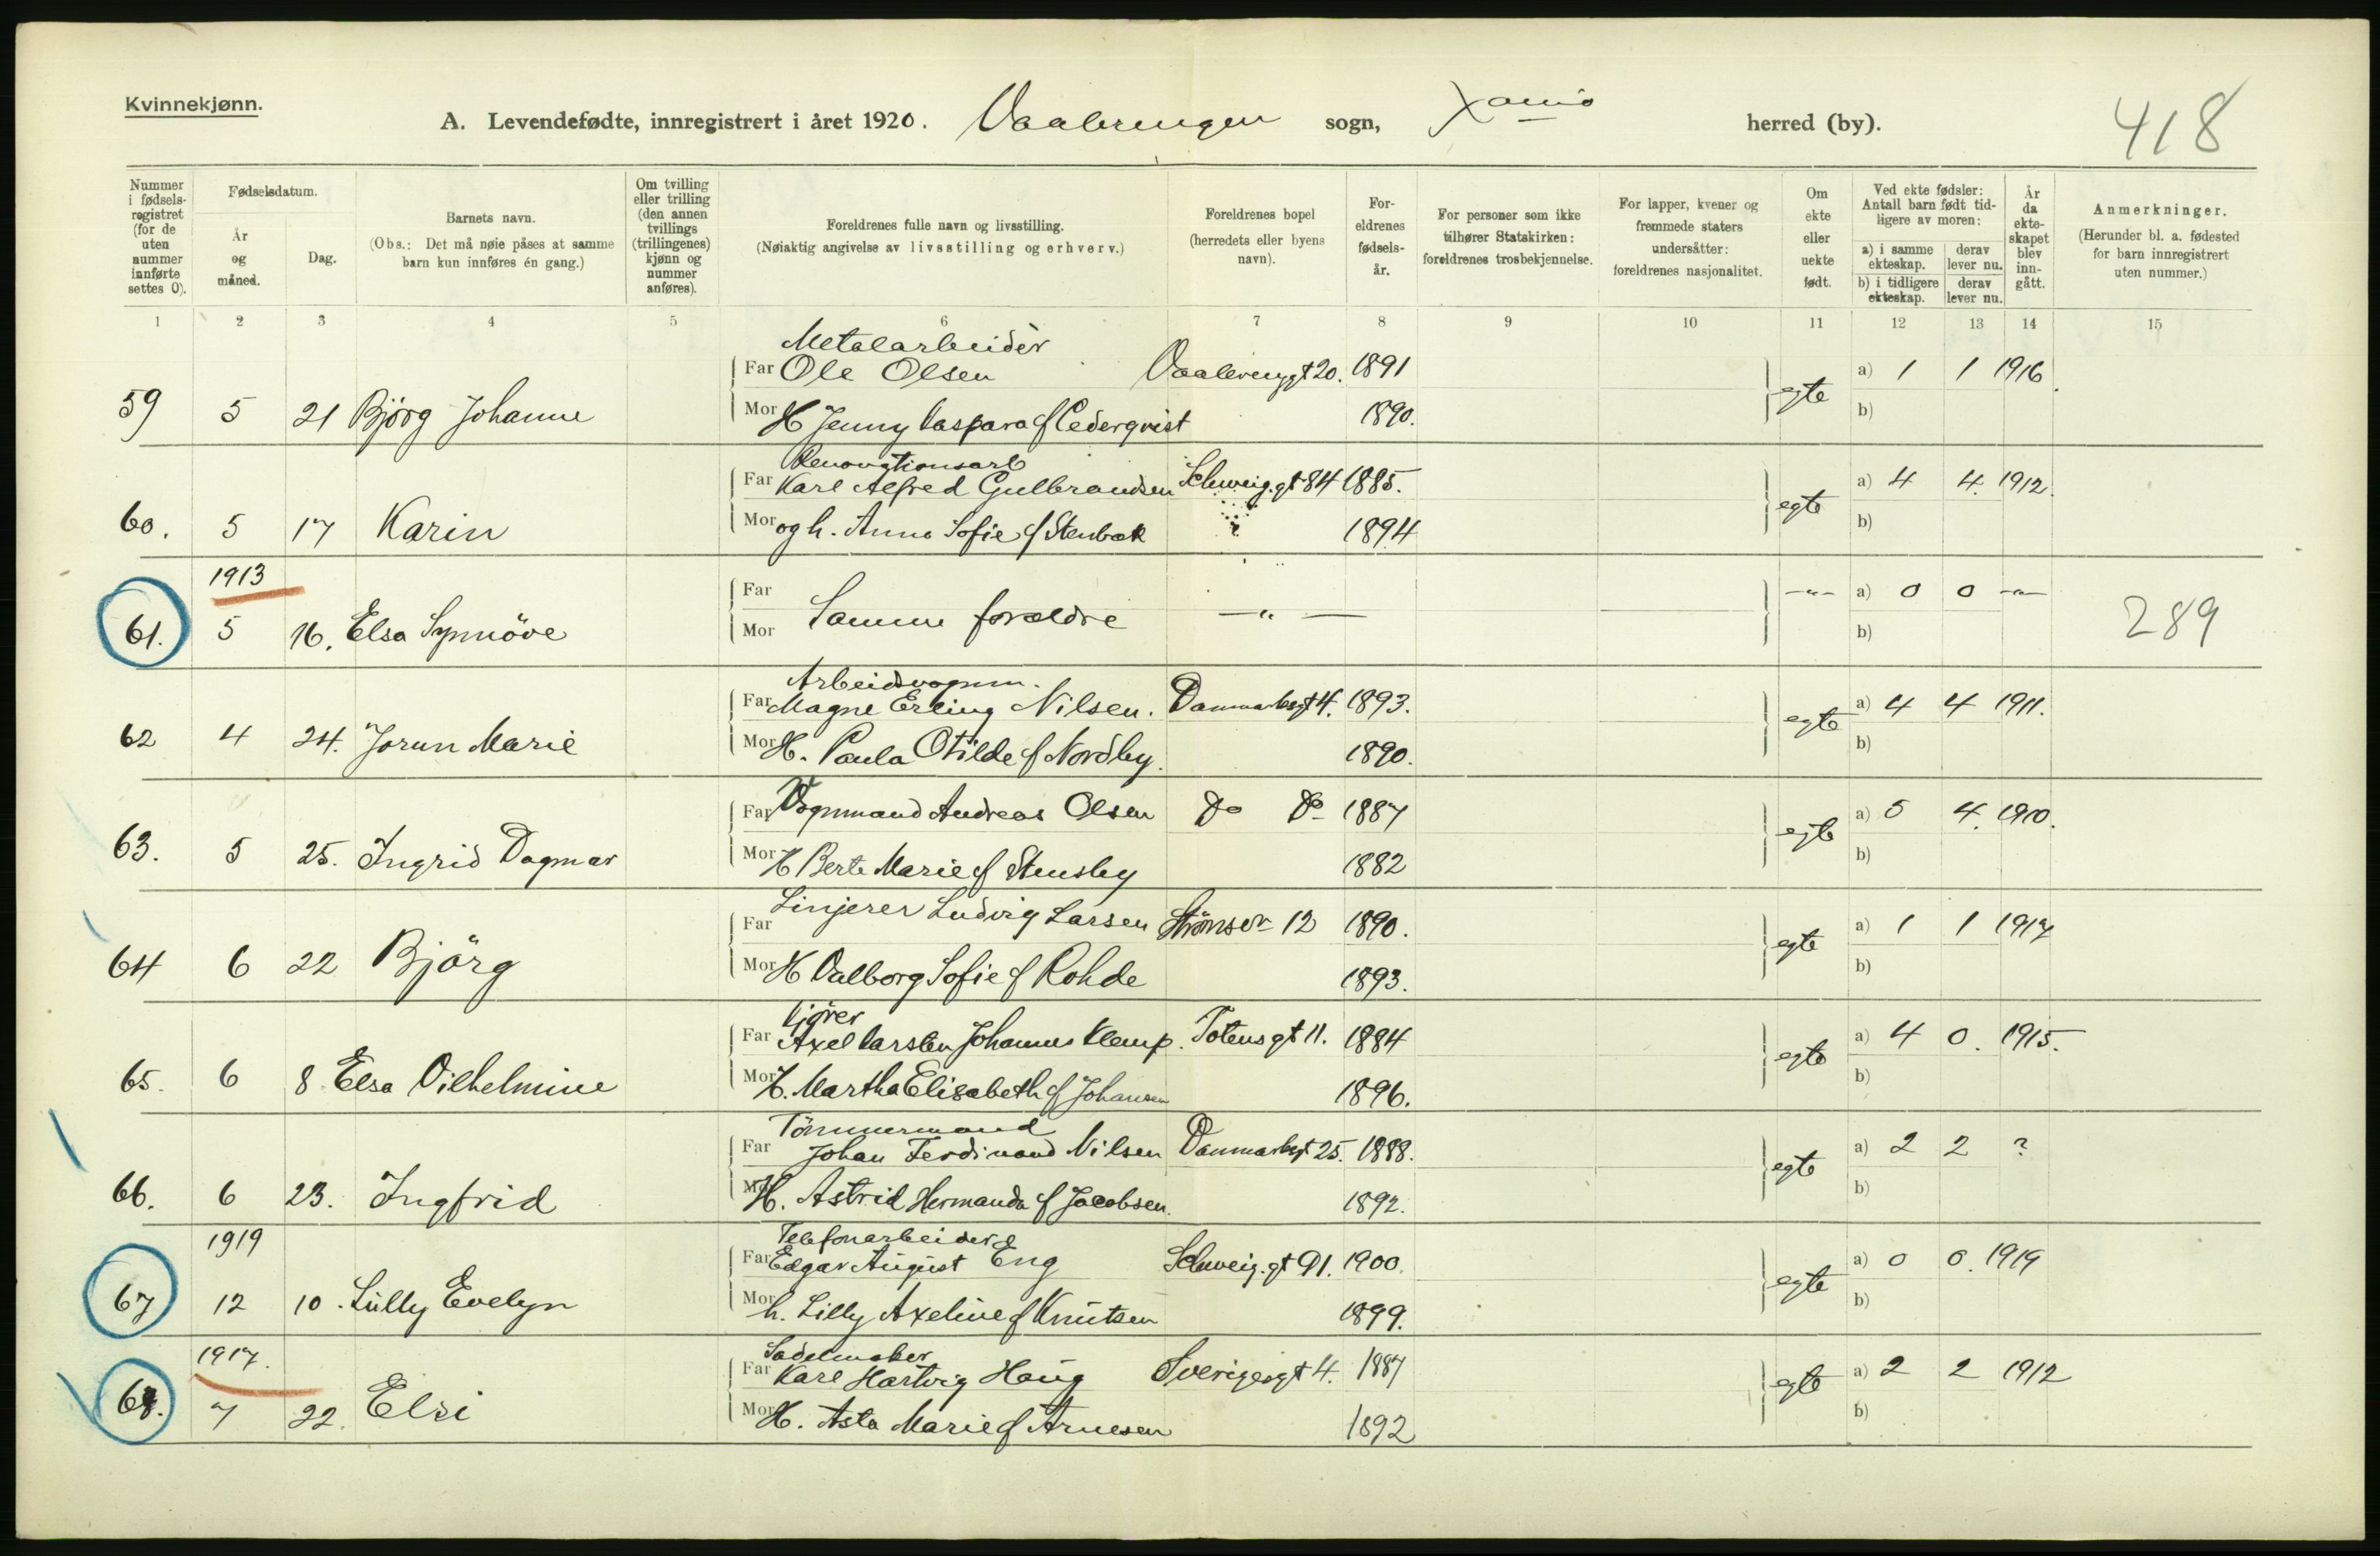 Kvinnekjønn.
A. Levendefødte, innregistrert i året 1920. Vaalerengen sogn, Xania herred (by). 418
Nummer i fødselsregistret (for de uten nummer innførte settes 0).
Fødselsdatum.
År og måned.
Dag.
Barnets navn.
(Obs.: Det må nøie påses at samme barn kun innføres én gang.)
Om tvilling eller trilling (den annen tvillings (trillingenes) kjønn og nummer anføres).
Foreldrenes fulle navn og livsstilling.
(Nøiaktig angivelse av livsstilling og erhverv.)
Foreldrenes bopel (herredets eller byens navn).
Foreldrenes fødselsår.
For personer som ikke tilhører Statskirken: foreldrenes trosbekjennelse.
For lapper, kvener og fremmede staters undersåtter: foreldrenes nasjonalitet.
Om ekte eller uekte født.
Ved ekte fødsler: Antall barn født tidligere av moren:
a) i samme ekteskap. derav lever nu.
b) i tidligere ekteskap. derav lever nu.
År da ekteskapet blev inngått.
Anmerkninger.
(Herunder bl. a. fødested for barn innregistrert uten nummer.)
1 2 3 4 5 6 7 8 9 10 11 12 13 14 15
Metalarbeider
Far Ole Olsen Vaalerenggt 20. 1891 a) 1 1 1916
59 5 21 Bjørg Johanne Mor H Jenny Caspara f Cederqvist 1890. egte b)
Renovationsarb
Far Karl Alfred Gulbrandsen Schweig.gt 84 1885. a) 4 4. 1912.
60. 5 17 Karin Mor og h. Anna Sofie f Stenbæk 1894 egte b)
1913
Far a) 0 0 -"-
61. 5 16. Elsa Synnöve Samme forældre -"- -"- 289
Mor b)
Arbeidsvognm.
Far Magne Erling Nilsen. Danmarksgt 4. 1893. a) 4 4 1911.
62 4 24. Jorun Marie Mor H. Paula Otilde f Nordby. 1890. egte b)
Far Vognmand Andreas Olsen Do Do 1887 a) 5 4. 1910.
63. 5 25. Ingrid Dagmar Mor H Berte Marie f Stensby 1882 egte b)
Far Linjerer Ludvig Larsen Strömsv 12 1890. a) 1 1 1917
64 6 22 Björg Mor H Valborg Sofie f Rohde 1893. egte b)
Kjörer
Far Axel Carsten Johannes Klemp. Totensgt 11. 1884 a) 4 0. 1915.
65. 6 8 Elsa Vilhelmine Mor H. Martha Elisabeth f Johansen 1896. egte b)
Tömmermand
Far Johan Ferdinand Nilsen Danmarksgt 25. 1888. a) 2 2 ?
66. 6 23. Ingfrid Mor H. Astrid Hermanda f Jacobsen. 1892. egte b)
1919
Telefonarbeider
Far Edgar August Eng Schweig.gt 91. 1900. a) 0 0. 1919
67 12 10. Lilly Evelyn Mor h. Lilly Axeline f Knutsen 1899. egte b)
1917.
Sadelmaker
Far Karl Hartvig Haug Sverigesgt 4. 1887 a) 2 2 1912
68. 7 22. Elsi Mor H. Asta Marie f Arnesen 1892 egte b)